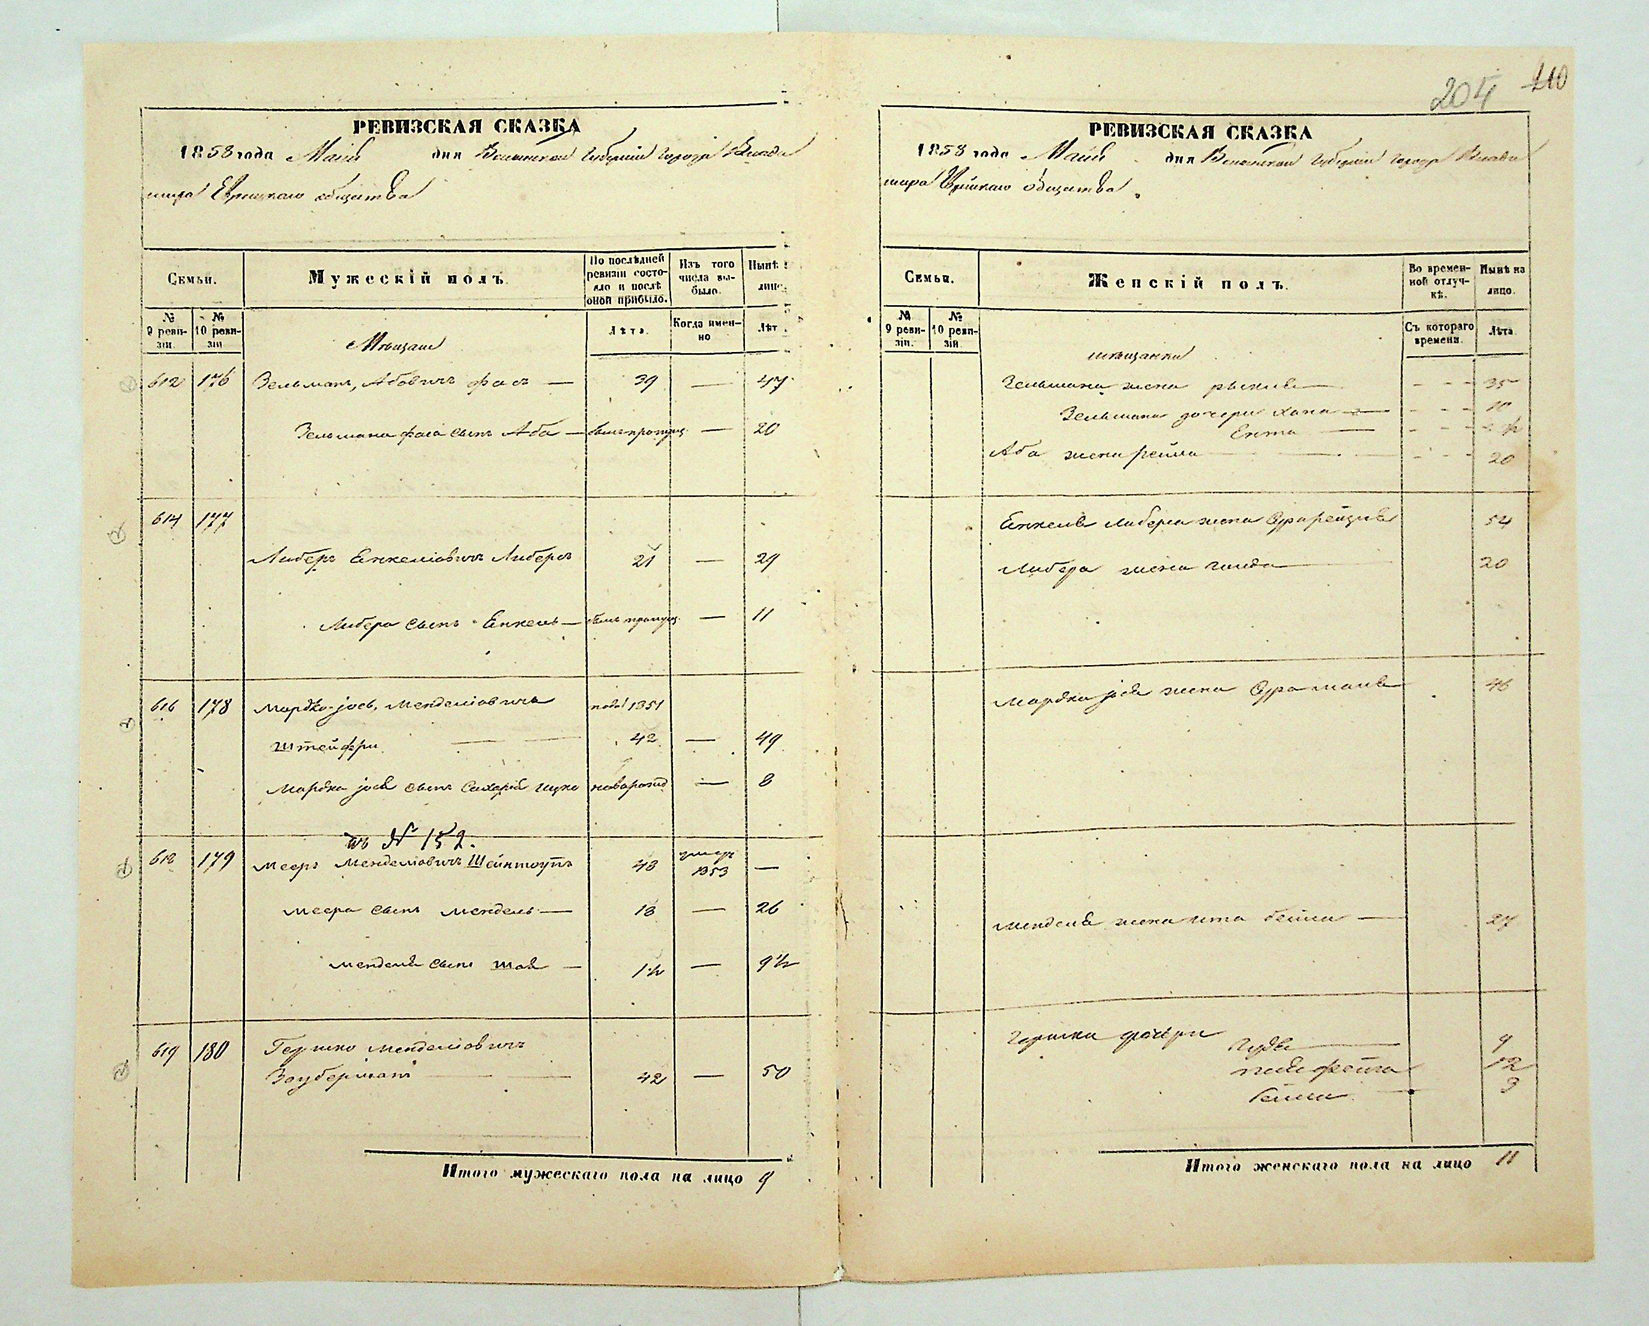 204 210
РЕВИЗСКАЯ СКАЗКА
1858 года Маія дня Волынской Губерніи города Влади
мира Еврейскаго общества
Семьи.
Мужескій полъ.
По послѣдней ревизіи состояло и послѣ оной прибыло.
Изъ того числа выбыло.
Нынѣ лицо
№ 9 ревизіи.
№ 10 ревизіи
Лѣта.
Когда именно
Лѣт
Мѣщане
612 176 Зельманъ Абовичъ фасъ — 39 — 47
Зельмана фаса сынъ Аба — былъ пропущ — 20
614 177
Либеръ Енкеліовичъ Либеръ 21 — 29
Либера сынъ Енкель — былъ пропущ — 11
616 178 Мордко-Іось Менделіовичъ 1851
Штейфри 42 — 49
Мордка Іося сынъ новорожд — 8
въ № 152.
618 179 Мееръ Менделіовичъ 43 умеръ 1853 —
Меера сынъ Мендель — 18 — 26
Менделя сынъ Шая — 1½ — 9½
619 180 Гершко Менделіовичъ
Зауберманъ 42 — 50
Итого мужескаго пола на лицо 9
РЕВИЗСКАЯ СКАЗКА
1858 года Маія дня Волынской Губерніи города Влади
мира Еврейскаго общества
Семьи.
Женскій полъ.
Во временной отлучкѣ.
Нынѣ на лицо.
№ 9 ревизіи.
№ 10 ревизіи
Съ котораго времени.
Лѣта.
мѣщанки
Зельмана жена рыкля — 35
Зельмана дочери хана — 10
Ента —
Аба жена рейла 20
Енкеля Либера жена 54
Либера жена голда 20
Мордка Іося жена 46
Менделя жена Ита бейла — 27
Гершка дочери
9
12
бейла 3
Итого женскаго пола на лицо 11